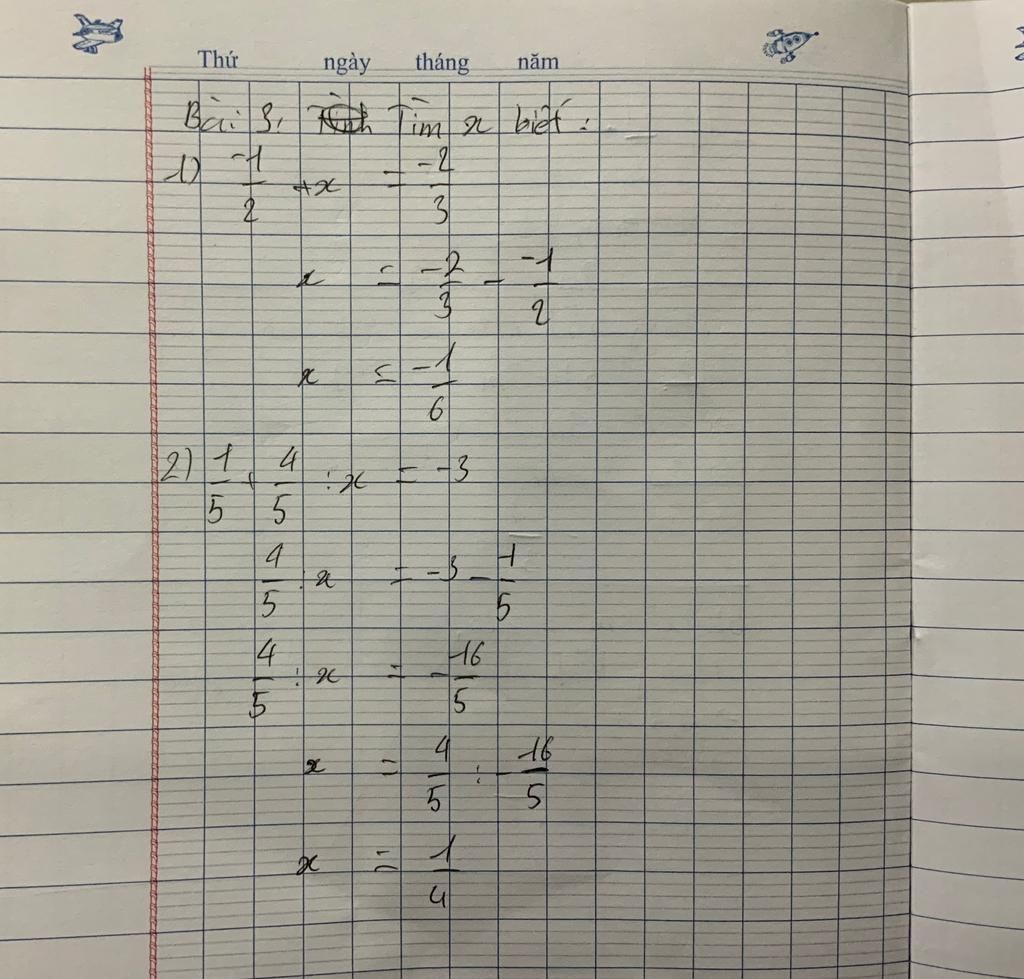 Thứ ngày tháng năm
Bài 3. Tính Tìm x biết:
1) -1/2 + x = -2/3
x = -2/3 - -1/2
x = -1/6
2) 1/5 + 4/5 : x = -3
4/5 : x = -3 - 1/5
4/5 : x = -16/5
x = 4/5 : -16/5
x = 1/4